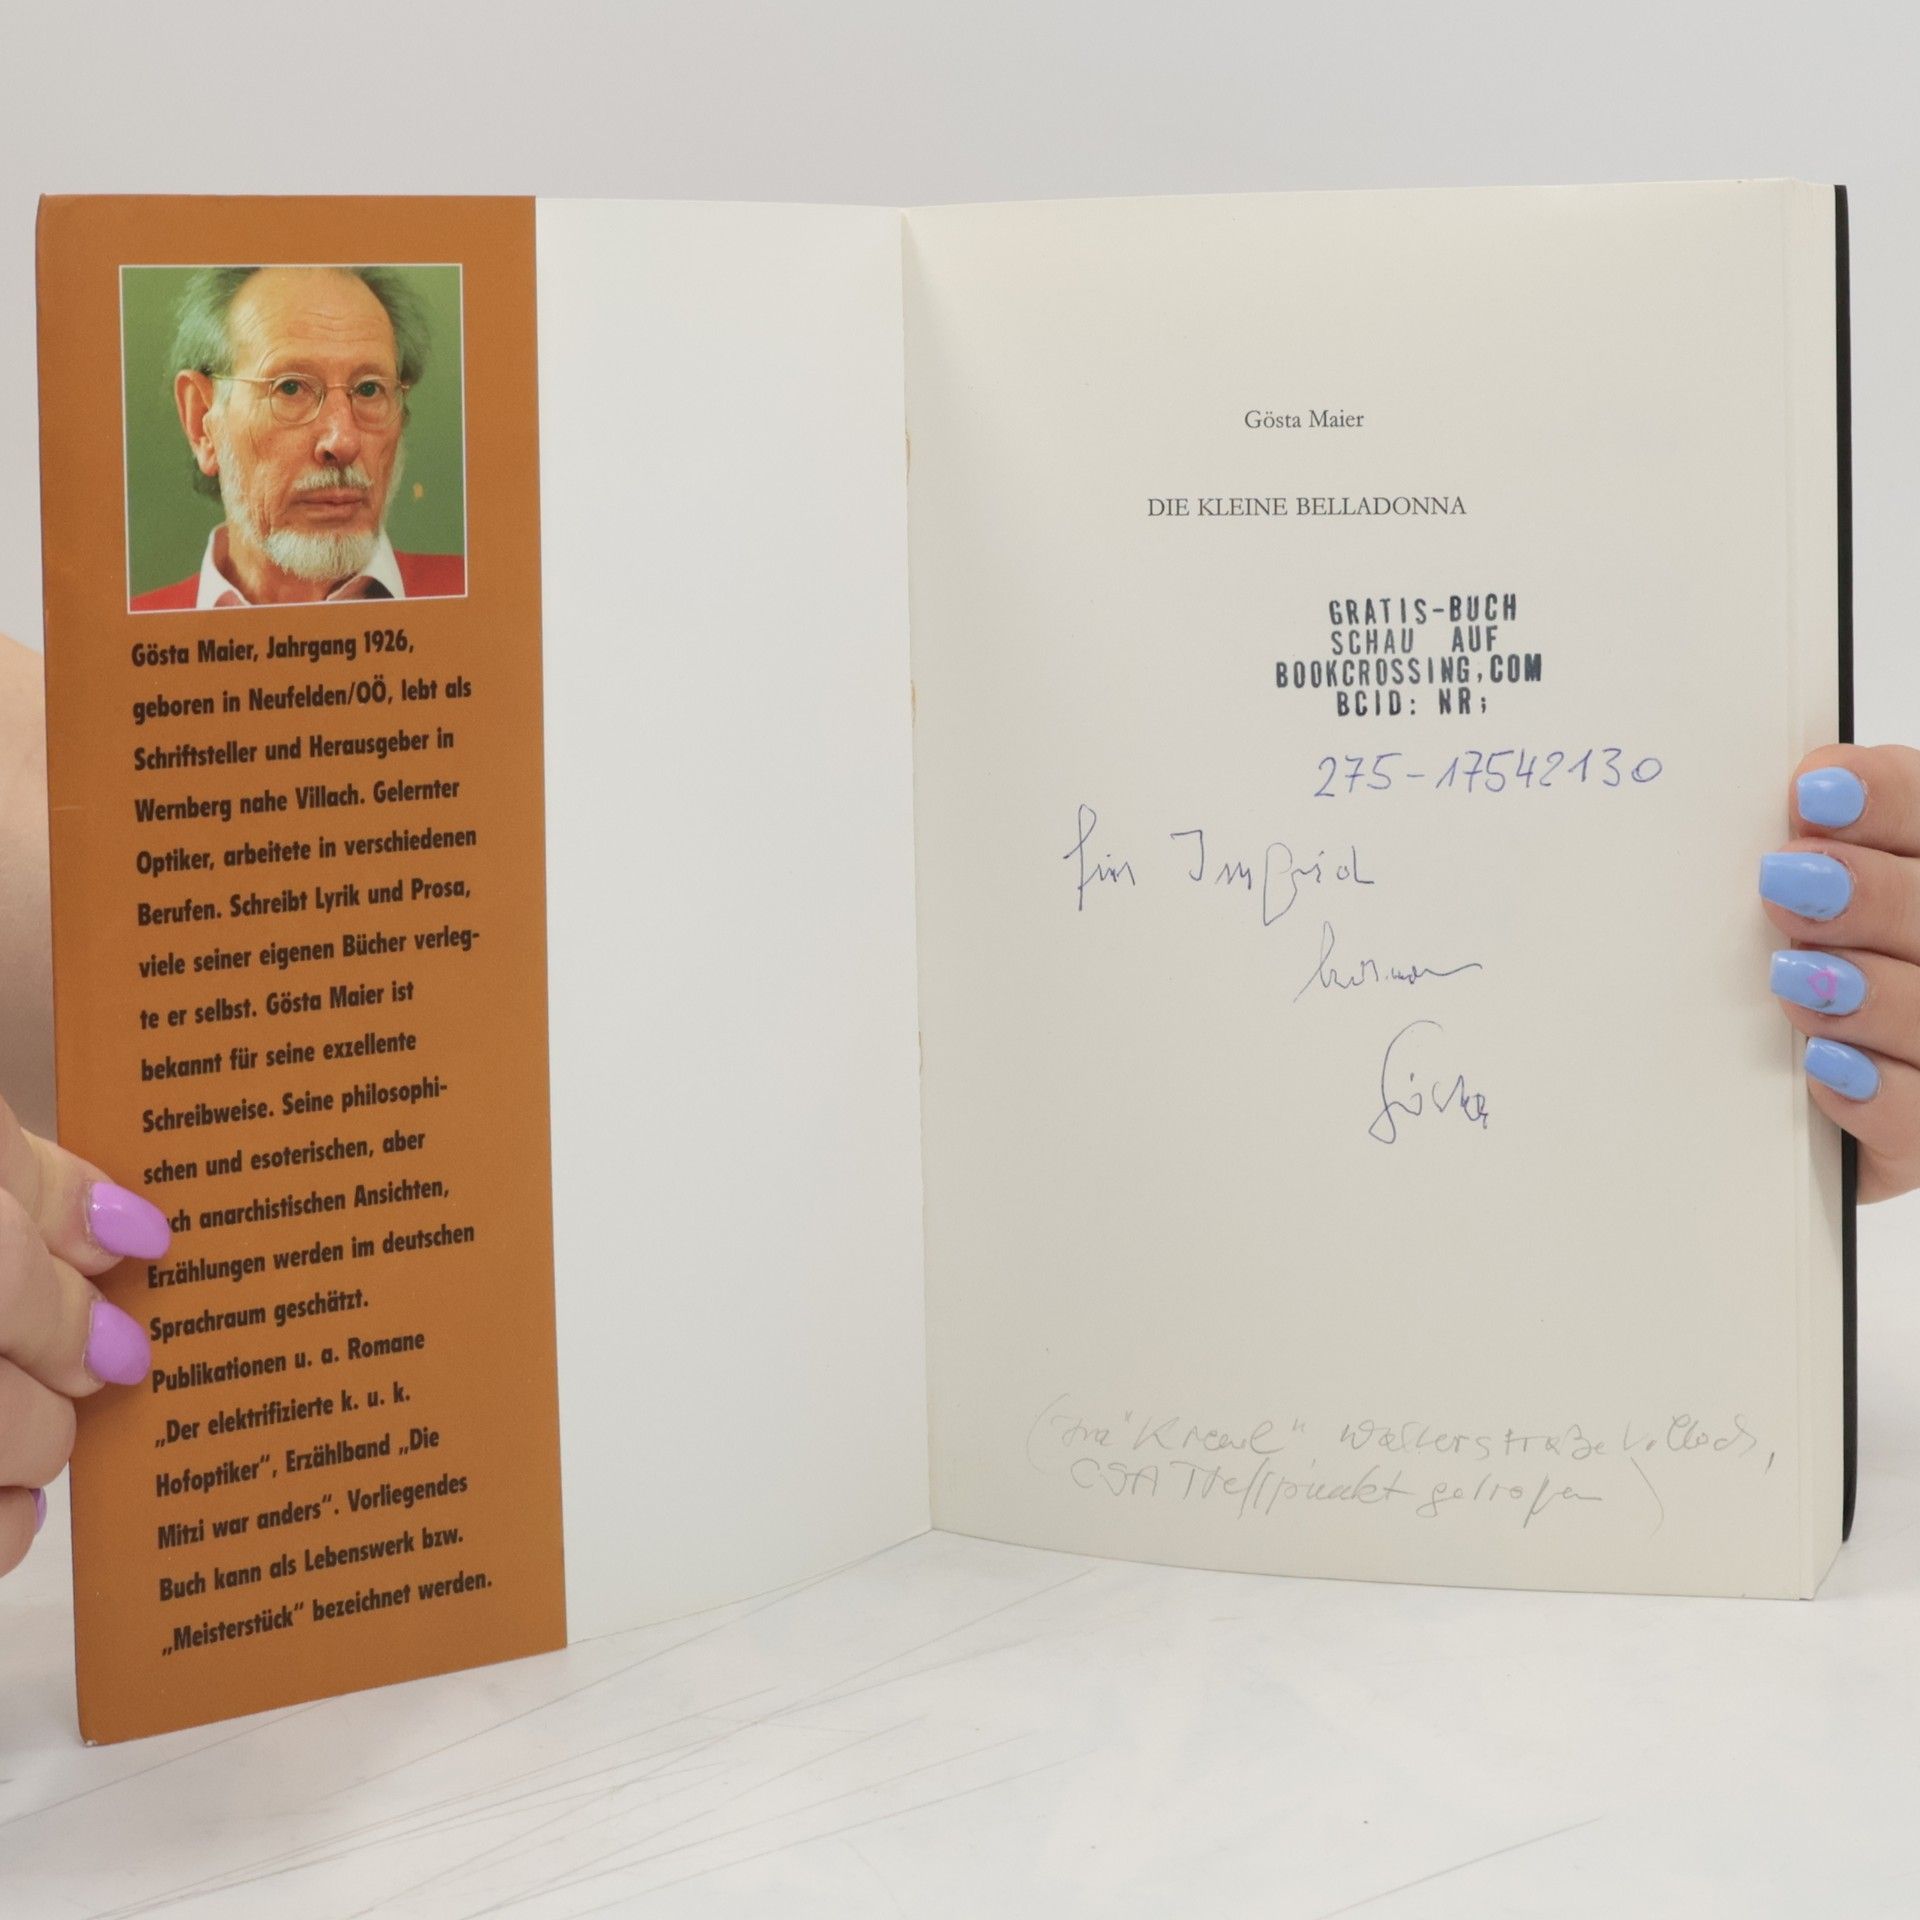 Gösta Maier, Jahrgang 1926,
geboren in Neufelden/OÖ, lebt als
Schriftsteller und Herausgeber in
Wernberg nahe Villach. Gelernter
Optiker, arbeitete in verschiedenen
Berufen. Schreibt Lyrik und Prosa,
viele seiner eigenen Bücher verleg-
te er selbst. Gösta Maier ist
bekannt für seine exzellente
Schreibweise. Seine philosophi-
schen und esoterischen, aber
ch anarchistischen Ansichten,
Erzählungen werden im deutschen
Sprachraum geschätzt.
Publikationen u. a. Romane
„Der elektrifizierte k. u. k.
Hofoptiker“, Erzählband „Die
Mitzi war anders“. Vorliegendes
Buch kann als Lebenswerk bzw.
„Meisterstück“ bezeichnet werden.
Gösta Maier
DIE KLEINE BELLADONNA
GRATIS-BUCH
SCHAU AUF
BOOKCROSSING.COM
BCID: NR;
275-17542130
für Ingrid
Gösta
Treffpunkt getroffen)